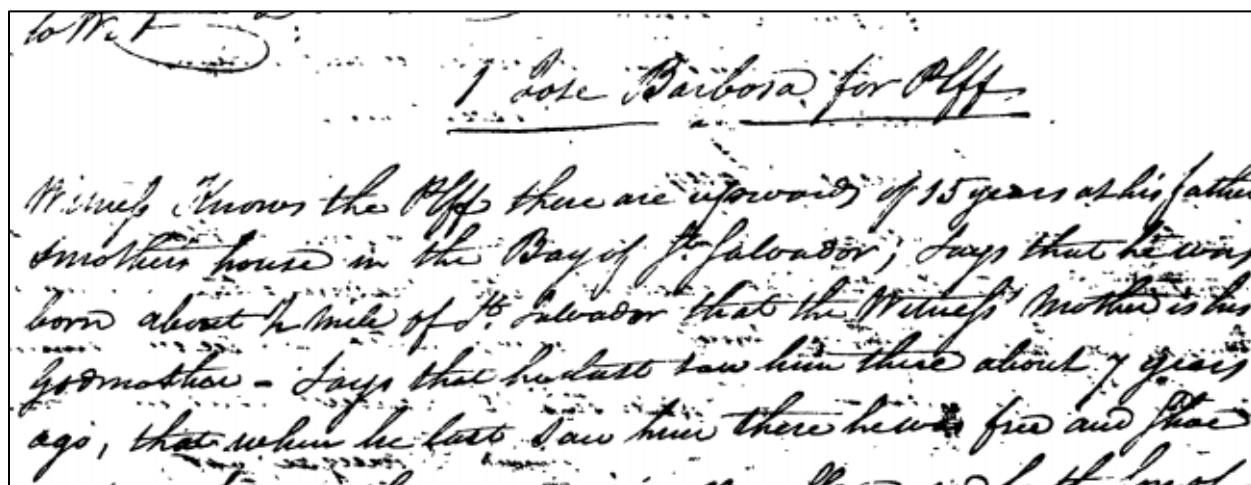 to Wit
1 Jose Barbosa for Plff
Witness Knows the Plff there are upwards of 15 years at his father
smothers house in the Bay of St. Salvador; Says that he was
born about ½ mile of St. Salvador that the Witness' Mother is his
Godmother - Says that he last saw him there about 7 years
ago, that when he last saw him there he was free and